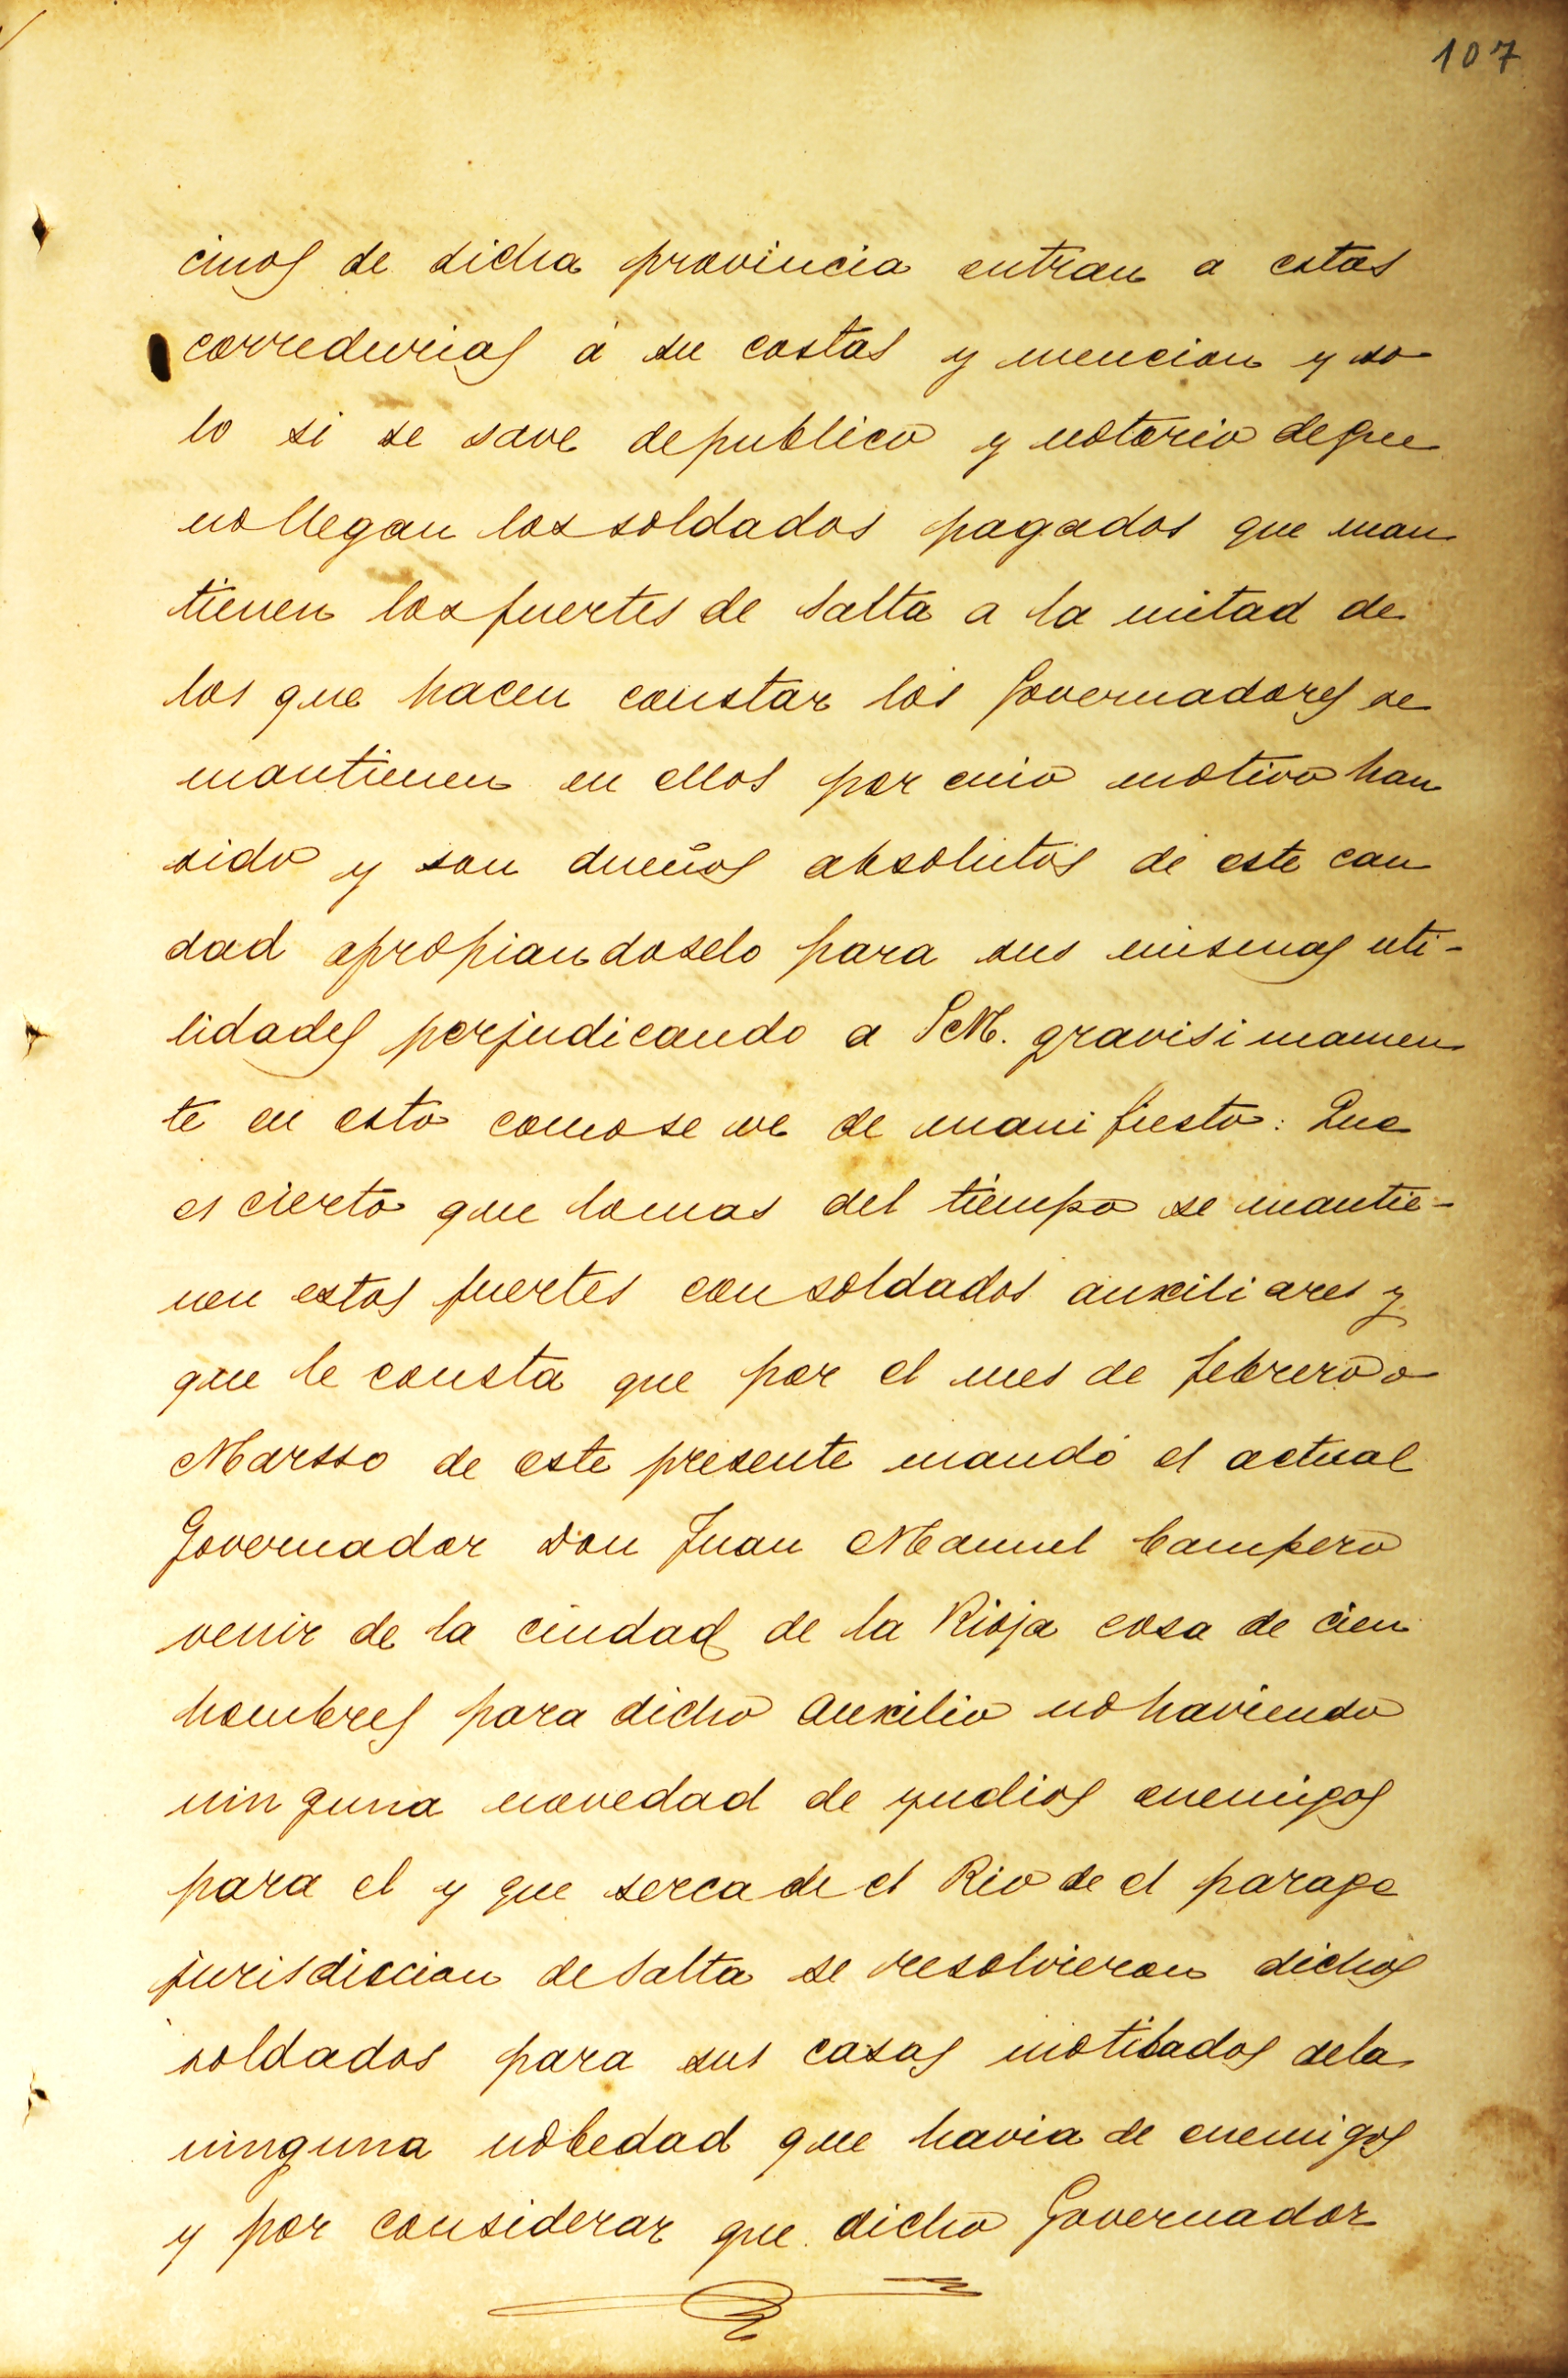 107
cinos de dicha provincia entran a estas
corredurias á su costas y mencion y so
lo si se save depublico y notorio deque
no llegan los soldados pagados que man
tienen los fuertes de Salta a la mitad de
los que hacen constar los Governadores se
mantienen en ellos por cuio motivo han
sido y son dueños absolutos de este cau
dad apropiandoselo para sus mismas uti-
lidades perjudicando a S.M. gravisimamen
te en esto como se ve de manifiesto: Que
es cierto que lomas del tiempo se mantie-
nen estos fuertes con soldados auxiliares y
que le consta que por el mes de febrero o
Marsso de este presente mandó el actual
Governador Don Juan Manuel Campero
venir de la ciudad de la Rioja cosa de cien
hombres para dicho auxilio no haviendo
ninguna novedad de yndios enemigos
para el y que serca de el Rio de el parage
jurisdiccion de Salta se resolvieron dichos
soldados para sus casas motibados dela
ninguna nobedad que havia de enemigos
y por considerar que dicho Governador